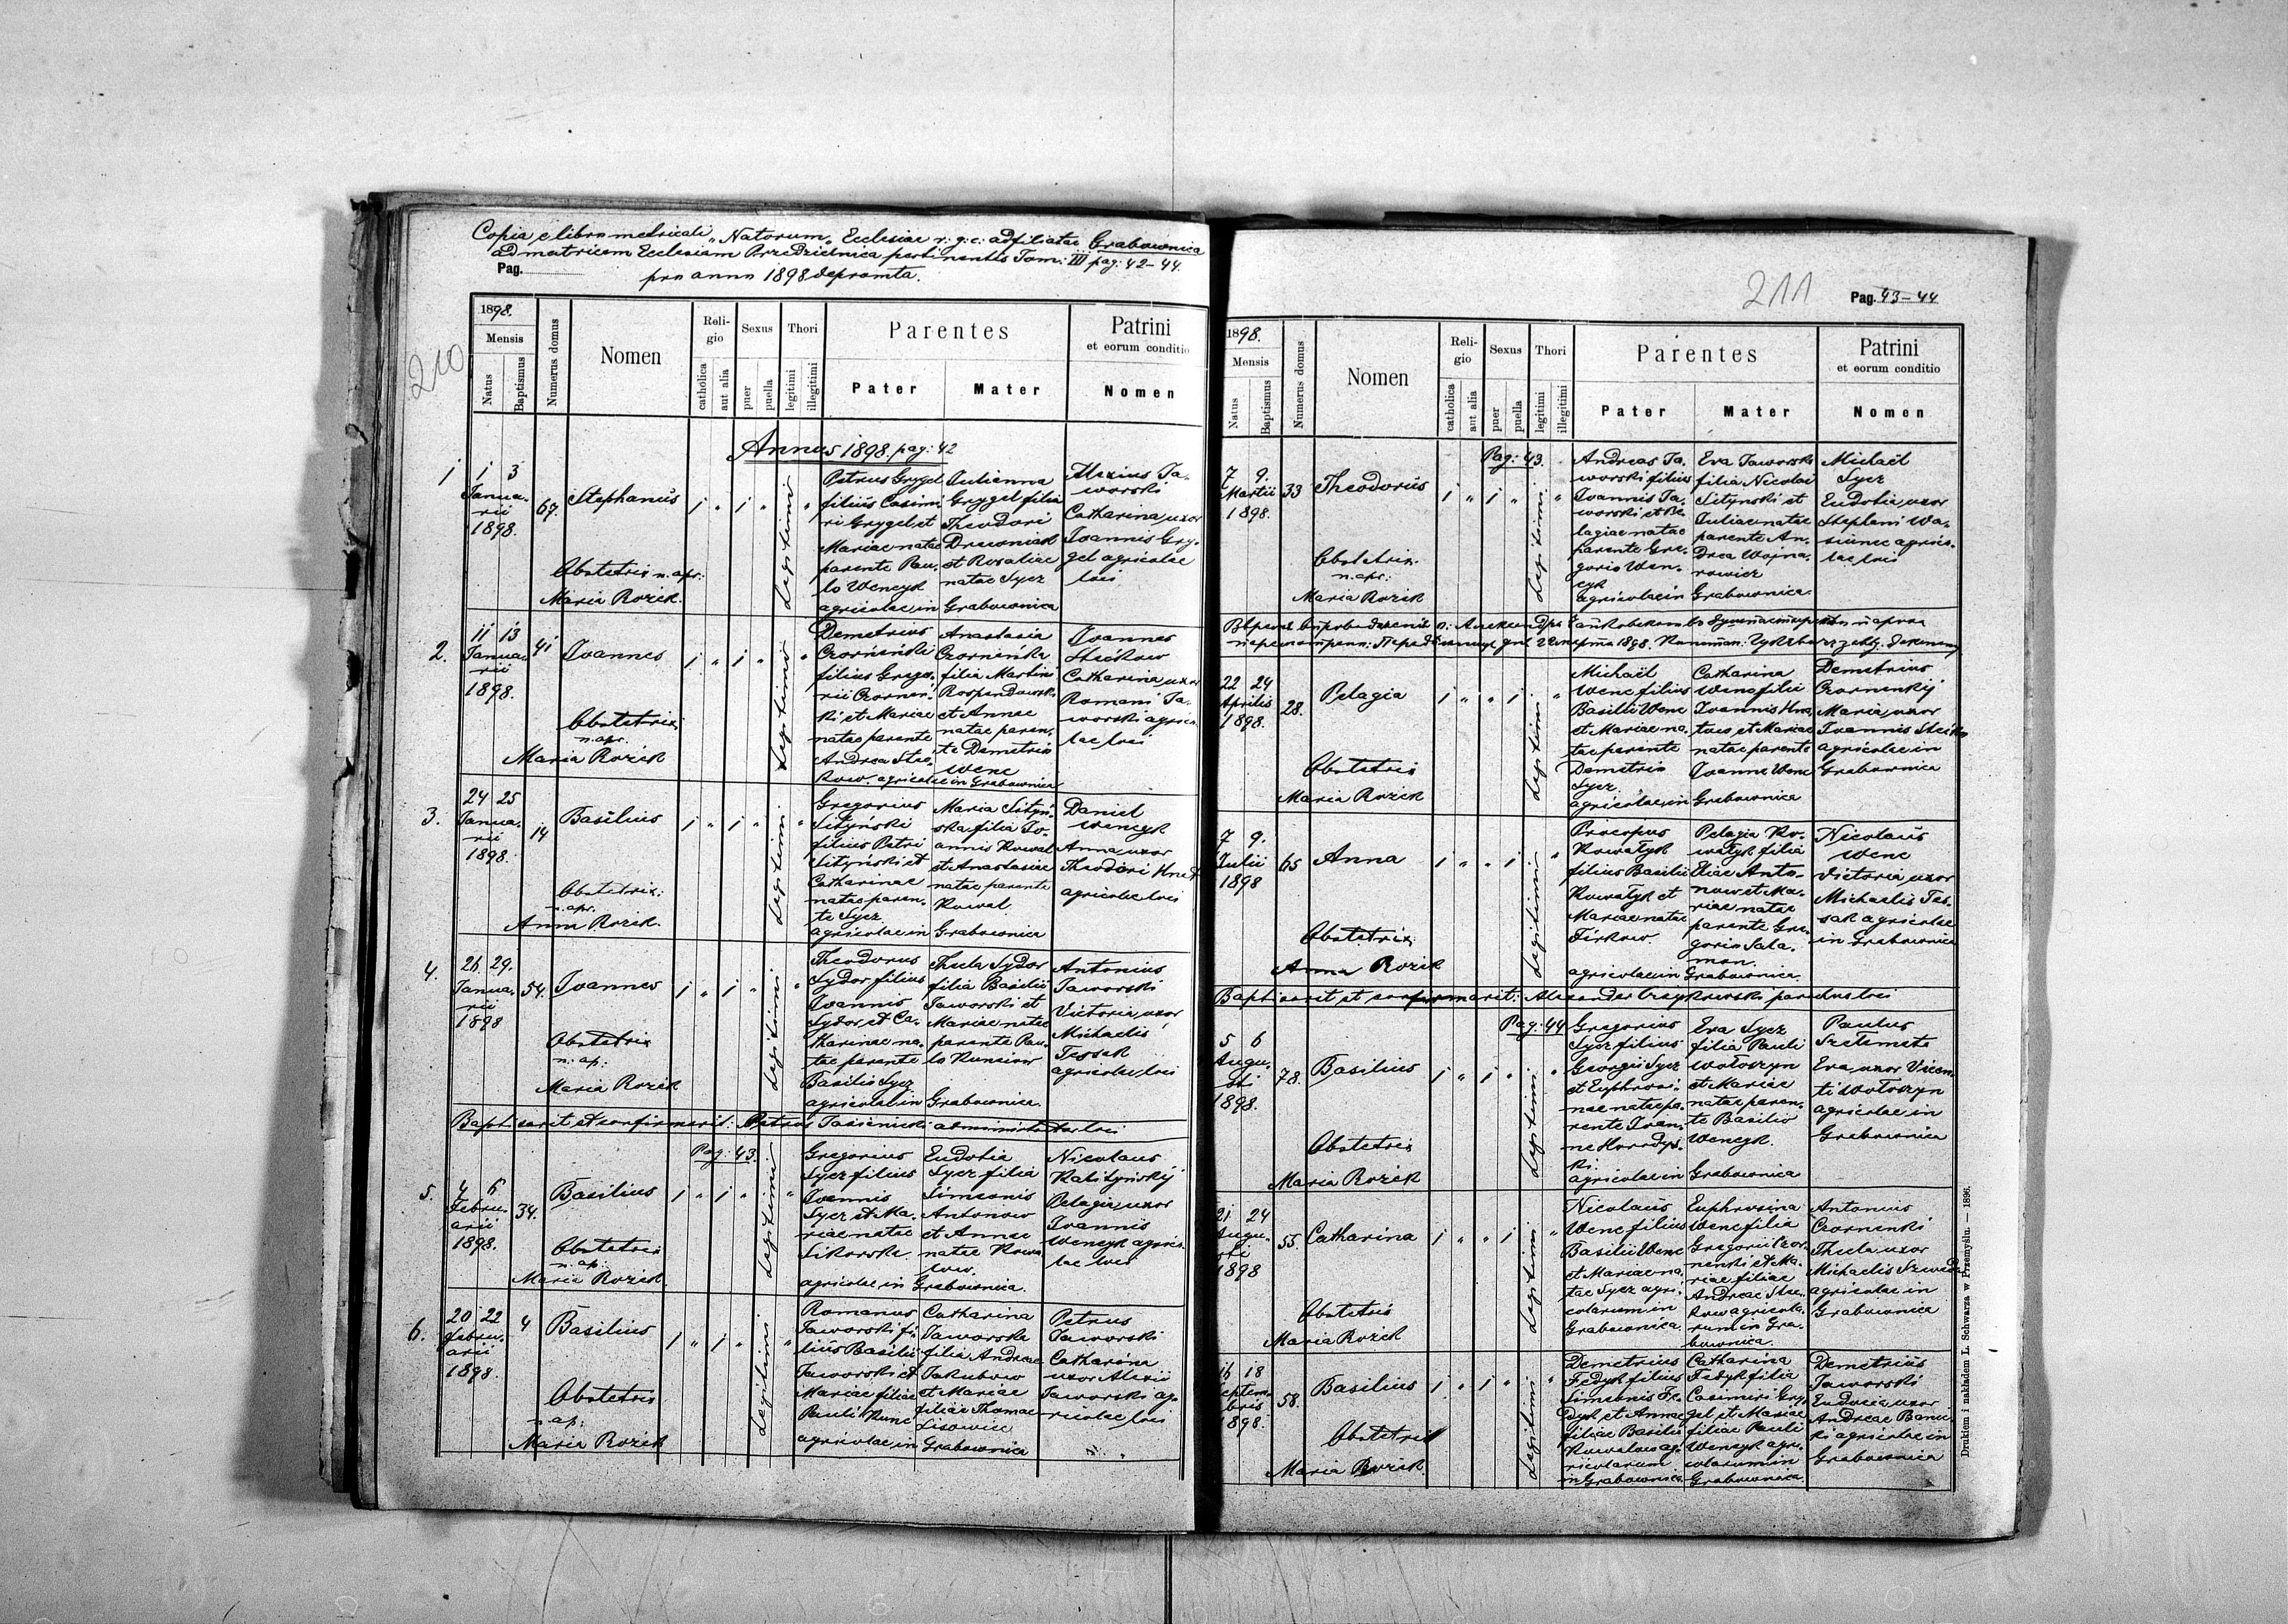 Copia e libro metricali „Natorum„ Ecclesiae r: g: c: adfiliatae Grabownica
ad matricem Ecclesiam Przedzielnica pertinentis Tom: III pag: 42–44.
Pag.
pro anno 1898 depromta.
210
1898.
Mensis
Natus
Baptismus
Numerus domus
Nomen
Religio
catholica
aut alia
Sexus
puer
puella
Thori
legitimi
illegitimi
Parentes
Pater
Mater
Patrini
et eorum conditio
Nomen
Annus 1898. pag: 42
1
1 3
Januarii
1898.
67.
Stephanus
Obstetrix n. apr:
Maria Rozik.
Legitimi
Petrus Grygel
filius Casimi-
ri Grygel et
Mariae natae
parente Pau-
lo Wencyk
agricolae in Grabownica
Julianna
Grygel filia
Theodori
Drewniak
et Rosaliae
natae Sycz
Alexius Ja-
worski
Catharina uxor
Joannis Gry-
gel agricolae
loci
2.
11 13
Januarii
1898.
41
Joannes
Obstetrix
n. apr.
Maria Rozik
Legitimi
Demetrius
Czorneński
filius Grego-
rii Czornen-
ski et Mariae
natae parente
Andrea Stec-
kow. agricolae in Grabownica
Anastasia
Czornenska
filia Martini
Rospendowski
et Annae
natae paren-
te Demetrio
Wenc
Joannes
Steckow
Catharina uxor
Romani Ja-
worski agrico-
lae loci
3.
24 25
Januarii
1898.
14
Basilius
Obstetrix:
n. apr.
Anna Rozik.
Legitimi
Gregorius
Sityński
filius Petri
Sityński et
Catharinae
natae paren-
te Sycz
agricolae in Grabownica
Maria Sityń-
ska filia Jo-
annis Kowal
et Anastasiae
natae parente
Kowal
Daniel
Wencyk
Anna uxor
Theodori Hnat
agricolae loci
4.
26 29.
Januarii
1898
54.
Joannes
Obstetrix
n. ap:
Maria Rozik
Legitimi
Theodorus
Sydor filius
Joannis
Sydor et Ca-
tharinae na-
tae parente
Basilio Sycz
agricolae in Grabownica.
Thecla Sydor
filia Basilii
Jaworski et
Mariae natae
parente Pau-
lo Kunciow
Antonius
Jaworski
Victoria uxor
Michaelis
Tessak
agricolae loci
Baptisavit et confirmavit: Petrus Jasienicki administrator loci
Pag: 43.
5.
4 6
Februarii
1898.
34.
Basilius
Obstetrix
n. ap:
Maria Rozik
Legitimi
Gregorius
Sycz filius
Joannis
Sycz et Ma-
riae natae
Sikorska
agricolae in Grabownica.
Eudotia
Sycz filia
Simeonis
Antonow
et Annae
natae Kowa-
low.
Nicolaus
Kalityńskij
Pelagia uxor
Joannis
Wencyk agrico-
lae loci
6.
20 22
Februarii
1898.
4
Basilius
Obstetrix
n. ap:
Maria Rozik
Legitimi
Romanus
Jaworski fi-
lius Basilii
Jaworski et
Mariae filiae
Pauli Kunc
agricolae in Grabownica
Catharina
Jaworska
filia Andreae
Jakubow
et Mariae
filiae Thomae
Lisowiec
Petrus
Jaworski
Catharina
uxor Alexii
Jaworski ag-
ricolae loci
211
Pag. 43–44
1898.
Mensis
Natus
Baptismus
Numerus domus
Nomen
Religio
catholica
aut alia
Sexus
puer
puella
Thori
legitimi
illegitimi
Parentes
Pater
Mater
Patrini
et eorum conditio
Nomen
Pag: 43.
7 9.
Martii
1898.
33
Theodorus
Obstetrix
n. apr:
Maria Rozik
Legitimi
Andreas Ja-
worski filius
Joannis Ja-
worski et Pe-
lagiae natae
parente Gre-
gorio Wen-
cyk
agricolae in Grabownica.
Eva Jaworski
filia Nicolai
Sitynski et
Juliae natae
parente An-
drea Wojna-
rowicz
Michaël
Sycz
Eudotia uxor
Stephani Wa-
siunec agrico-
lae loci
22 24
Aprilis
1898.
28.
Pelagia
Obstetrix
Maria Rozik
Legitimi
Michaël
Wenc filius
Basilii Wenc
et Mariae na-
tae parente
Demetrio
Sycz
agricolae in Grabownica
Catharina
Wenc filia
Joannis Hna-
tow et Mariae
natae parente
Joanne Wenc
Demetrius
Czornenkij
Maria uxor
Joannis Steckow
agricolae in
Grabownica
7 9.
Julii
1898
65
Anna
Obstetrix
Anna Rozik
Legitimi
Procopius
Kowałyk
filius Basilii
Kowałyk et
Mariae natae
Firkow.
agricolae in Grabownica.
Pelagia Ko-
wałyk filia
Eliae Anto-
now et Ma-
riae natae
parente Gre-
gorio Sala-
mon.
Nicolaus
Wenc
Victoria uxor
Michaelis Tes-
sak agricolae
in Grabownica
Baptisavit et confirmavit: Alexander parochus loci
Pag: 44
5 6
Augusti
1898.
78.
Basilius
Obstetrix
Maria Rozik
Legitimi
Gregorius
Sycz filius
Georgii Sycz
et Euphrosi-
nae natae pa-
rente Joan-
ne Horodys-
ki.
agricolae in Grabownica
Eva Sycz
filia Pauli
Wołoszyn
et Mariae
natae paren-
te Basilio
Wencyk.
Paulus
Szelemeta
Eva uxor Vicen-
ti Wołoszyn
agricolae in
Grabownica
21 24
Augusti
1898
55.
Catharina
Obstetrix
Maria Rozik
Legitimi
Nicolaus
Wenc filius
Basilii Wenc
et Mariae na-
tae Sycz agri-
colarum in
Grabownica.
Euphrosina
Wenc filia
Gregorii Czor-
nenski et Ma-
riae filiae
Andreae Stec-
kow agricola-
rum in Gra-
bownica.
Antonius
Czornenki
Thecla uxor
Michaelis Szweda
agricolae in
Grabownica
16 18
Septembris
1898.
58.
Basilius
Obstetrix
Maria Rozik.
Legitimi
Demetrius
Fedyk filius
Simeonis Fe-
dyk et Annae
filiae Basilii
Kowalow ag-
ricolarum
in Grabownica.
Catharina
Fedyk filia
Casimiri Gry-
gel et Mariae
filiae Pauli
Wencyk agri-
colarum in
Grabownica.
Demetrius
Jaworski
Eudoxia uxor
Andreae Banc-
ki agricolae in
Grabownica
Drukiem i nakładem L. Schwarza w Przemyślu. — 1896.